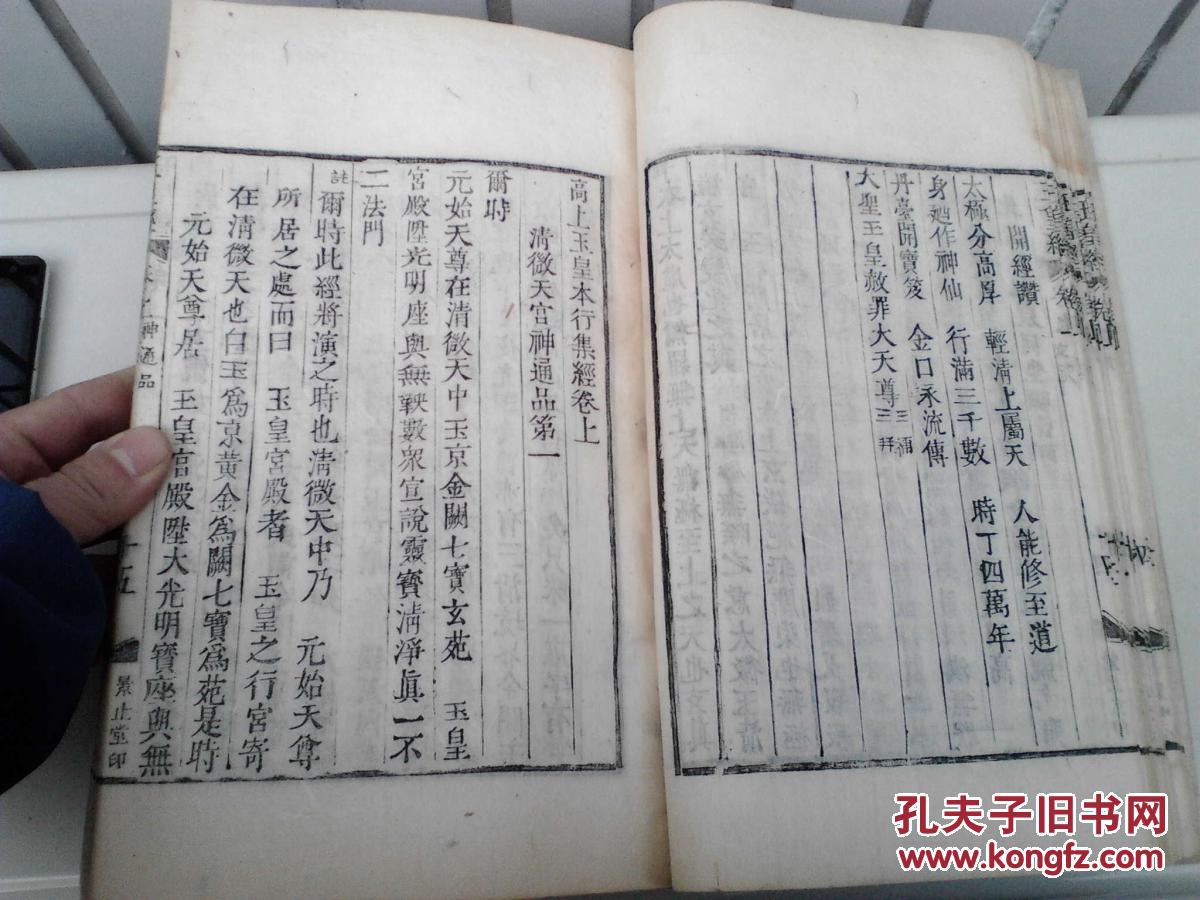 開經讚
太極分高厚　輕清上屬天　人能修至道
身廼作神仙　行滿三千數　時丁四萬年
丹臺開寶笈　金口永流傳
大聖玉皇赦罪大天尊三拜
高上玉皇本行集經卷上
清微天宮神通品第一
爾時
元始天尊在清微天中玉京金闕七寶玄苑　玉皇
宮殿陞光明座與無鞅數衆宣說靈寶清淨眞一不
二法門
註　爾時此經將演之時也清微天中乃　元始天尊
所居之處而曰　玉皇宮殿者　玉皇之行宮寄
在清微天也白玉爲京黃金爲闕七寶爲苑是時
元始天尊居　玉皇宮殿陞大光明寶座與無
神通品
十五
景止堂印
孔夫子旧书网
www.kongfz.com